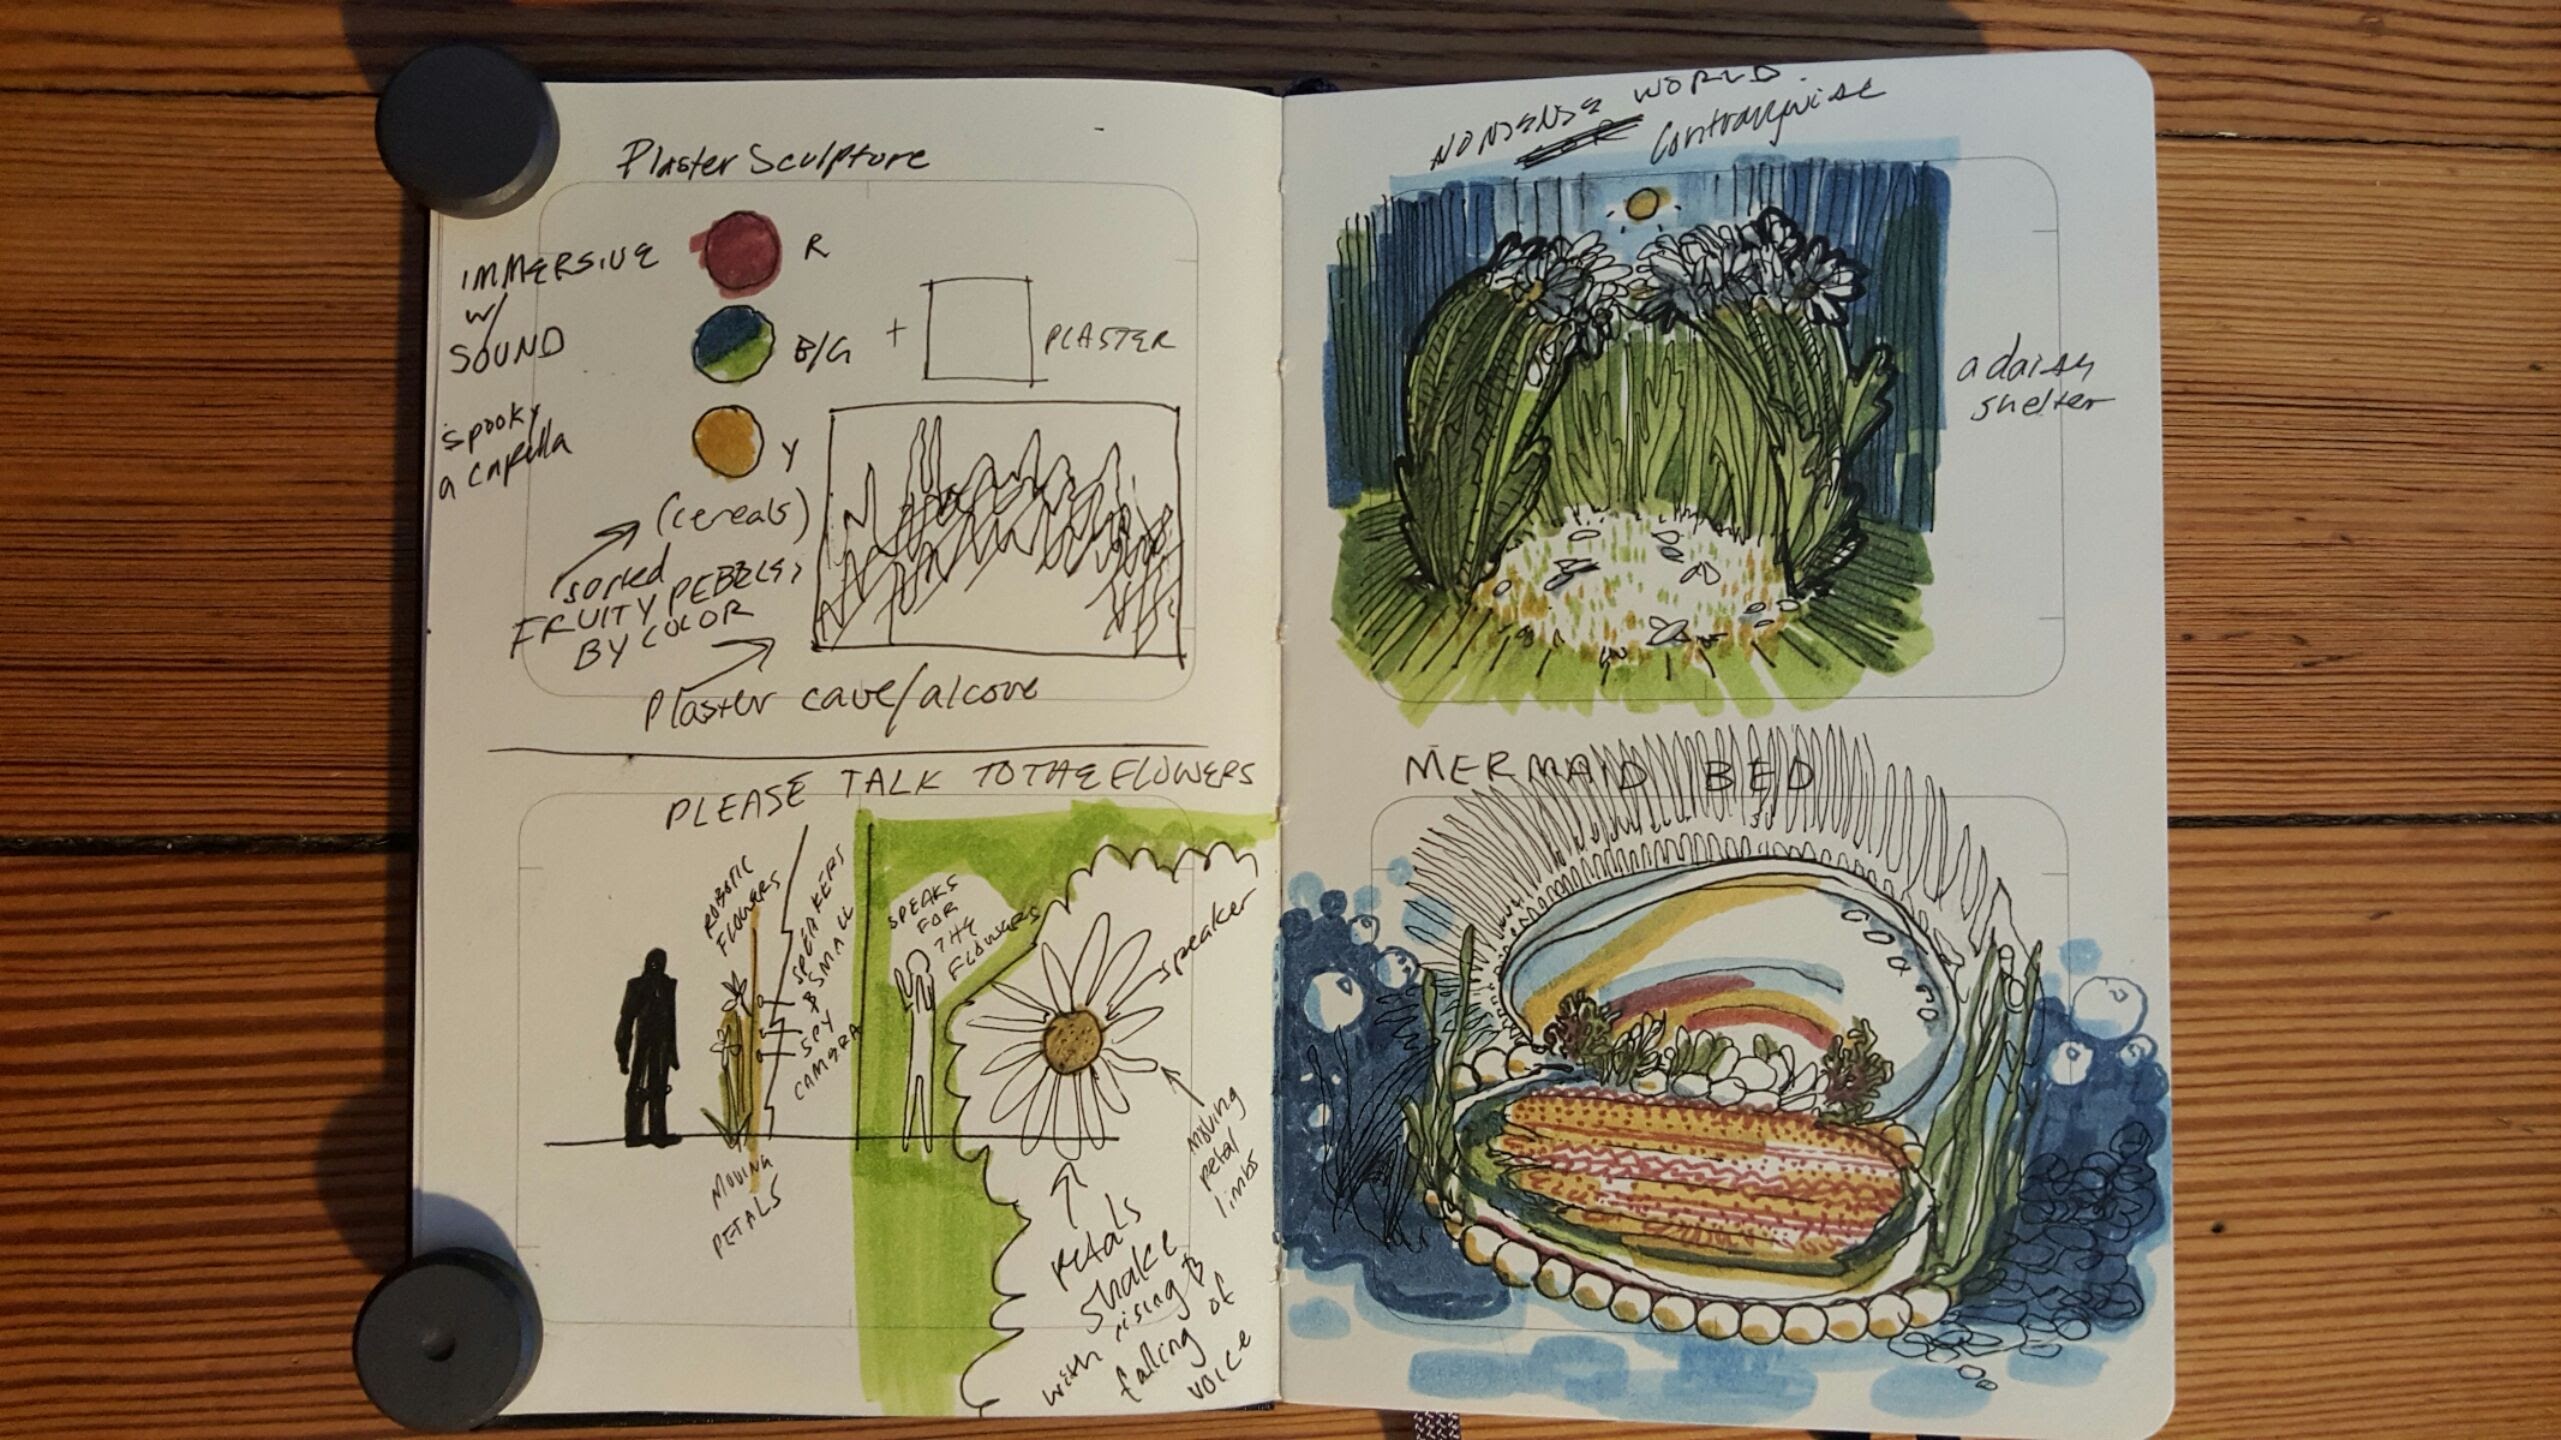 Plaster Sculpture
IMMERSIVE
w/
SOUND
spooky
a capella
R
B/G
+
PLASTER
Y
(cereals)
sorted
FRUITY PEBBLES
BY COLOR
Plaster cave/alcove
PLEASE TALK TO THE FLOWERS
ROBOTIC
FLOWERS
SPEAKERS
& SMALL
SPY
CAMERA
MOVING
PETALS
SPEAKS
FOR
THE
FLOWERS
speaker
moving
petal
limbs
petals
shake
with rising &
falling of
voice
NONSENSE WORLD.
Contrarywise
a daisy
shelter
MERMAID BED